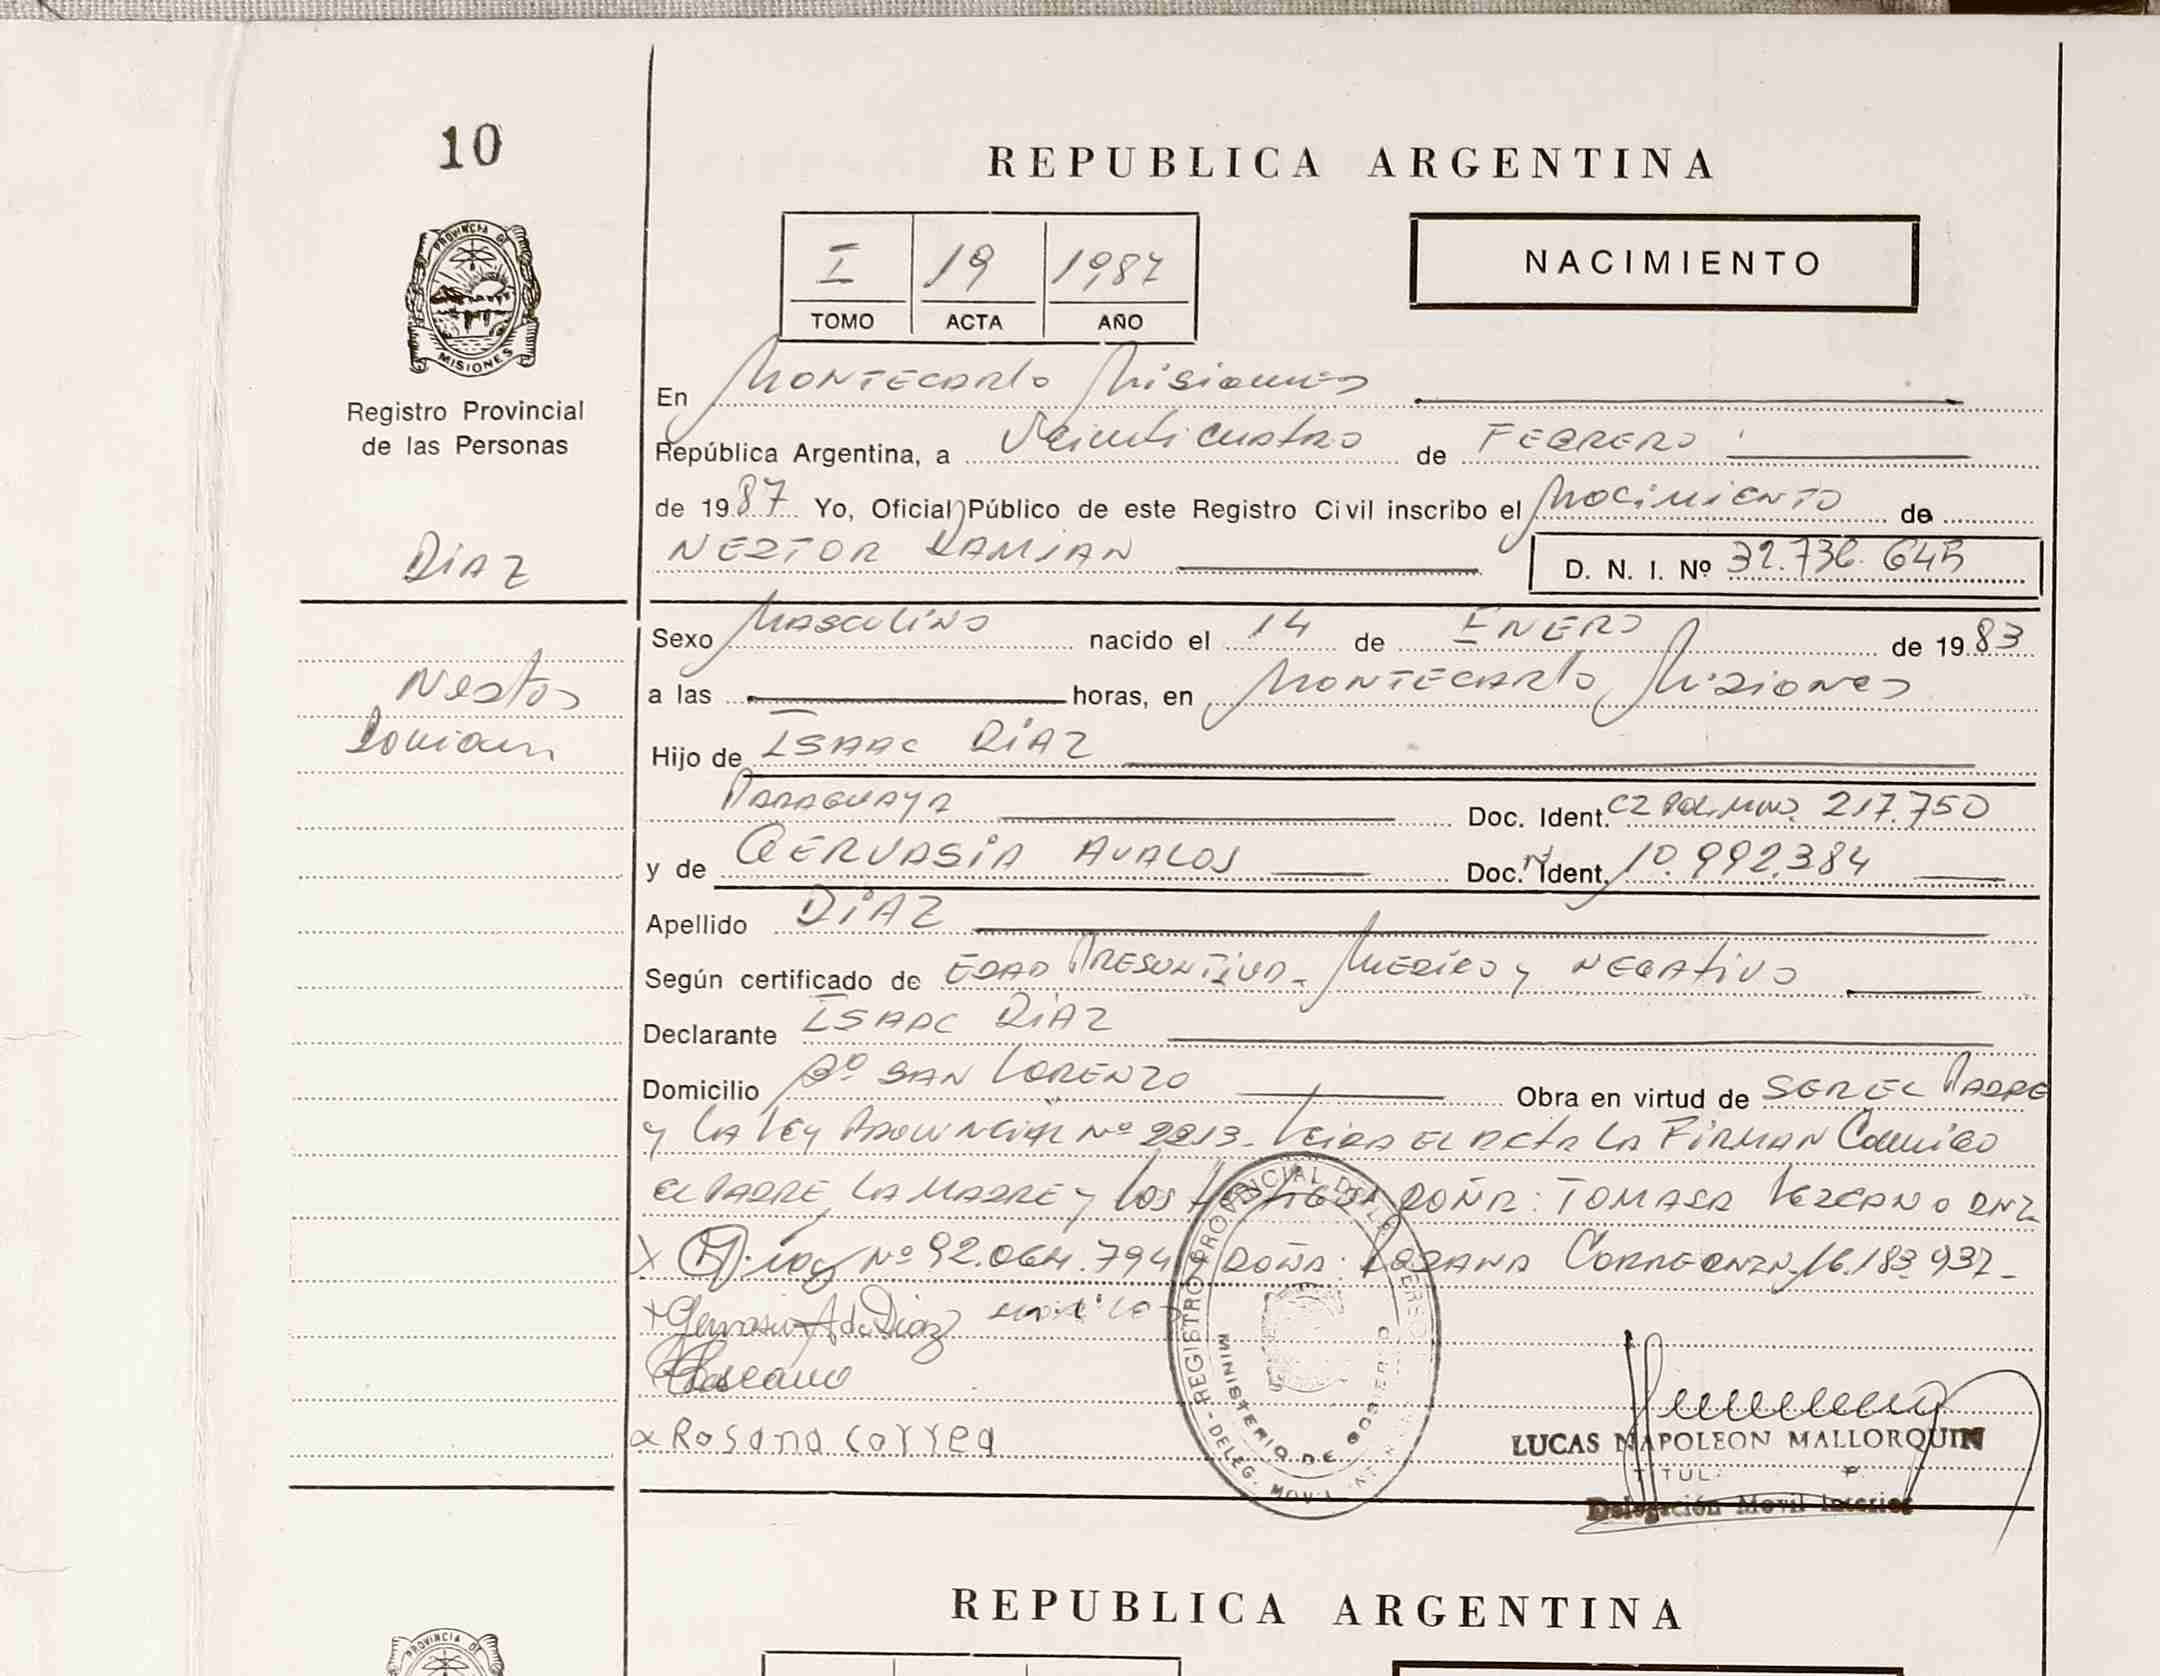 10
REPUBLICA ARGENTINA
I 19 1987
TOMO ACTA AÑO
NACIMIENTO
PROVINCIA DE MISIONES
Registro Provincial
de las Personas
En Montecarlo Misiones
República Argentina, a Veinticuatro de FEBRERO
de 1987 Yo, Oficial Público de este Registro Civil inscribo el Nacimiento de
DIAZ
NESTOR DAMIAN D. N. I. Nº 32.736.645
Sexo Masculino nacido el 14 de ENERO de 1983
Nestor
a las horas, en Montecarlo, Misiones
Damian
Hijo de ISAAC DIAZ
PARAGUAYA Doc. Ident. CI Pol. Mnes. 217.750
y de GERVASIA AVALOS Doc. Ident. 10.992.384
Apellido DIAZ
Según certificado de EDAD PRESUNTIVA - MEDICO y NEGATIVO
Declarante ISAAC DIAZ
Domicilio Bº SAN LORENZO Obra en virtud de SER EL PADRE
y LA LEY PROVINCIAL Nº 2213. Leida EL Acta LA FIRMAN Conmigo
EL PADRE, LA MADRE y LOS DOÑA: TOMASA LEZCANO DNI
Nº 92.064.794 y DOÑA: ROSANA CORREA DNI. 16.183.937-
+ Gervasia A de Diaz
Lescano
x Rosana correa
REGISTRO PROVINCIAL DE LAS PERSONAS - DELEG. MOVIL INTERIOR
MINISTERIO DE GOBIERNO
LUCAS NAPOLEON MALLORQUIN
TITUL
Delegación Movil Interior
REPUBLICA ARGENTINA
PROVINCIA DE